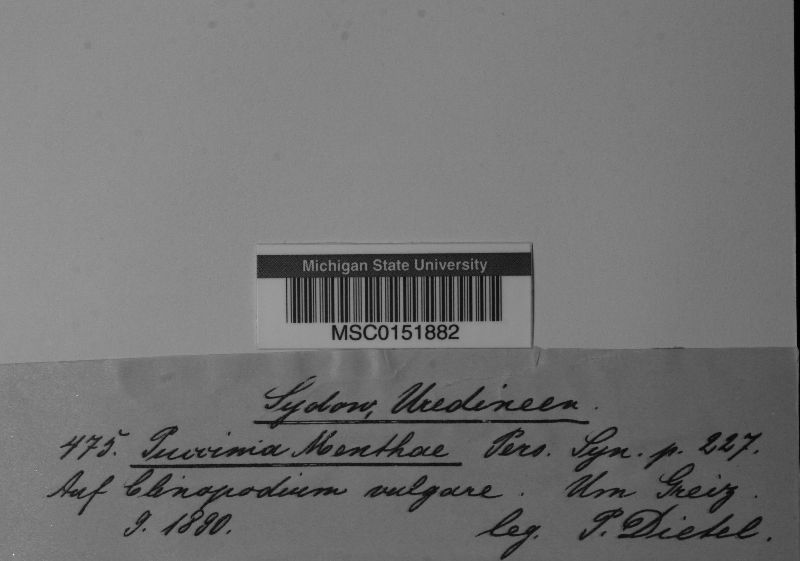 Michigan State University
MSC0151882
Sydow, Uredineen.
475. Puccinia Menthae Pers. Syn. p. 227.
Auf Clinopodium vulgare. Um Greiz.
9. 1890. leg. P. Dietel.